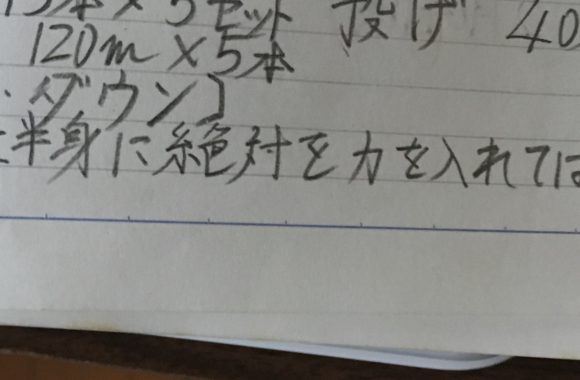 15本×5セット 投げ 40
120m×5本
・ダウン]
半身に絶対を力を入れては